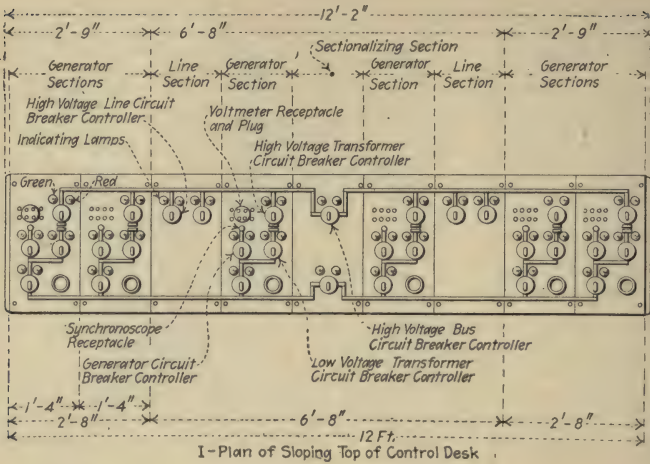 12'-2"
2'-9" 6'-8" 2'-9"
Generator Sections
Line Section
Generator Section
Sectionalizing Section
Generator Section
Line Section
Generator Sections
High Voltage Line Circuit
Breaker Controller
Indicating Lamps
Voltmeter Receptacle
and Plug
High Voltage Transformer
Circuit Breaker Controller
Green Red
Synchronoscope
Receptacle
Generator Circuit
Breaker Controller
High Voltage Bus
Circuit Breaker Controller
Low Voltage Transformer
Circuit Breaker Controller
1'-4" 1'-4"
2'-8" 6'-8" 2'-8"
12 Ft.
I-Plan of Sloping Top of Control Desk